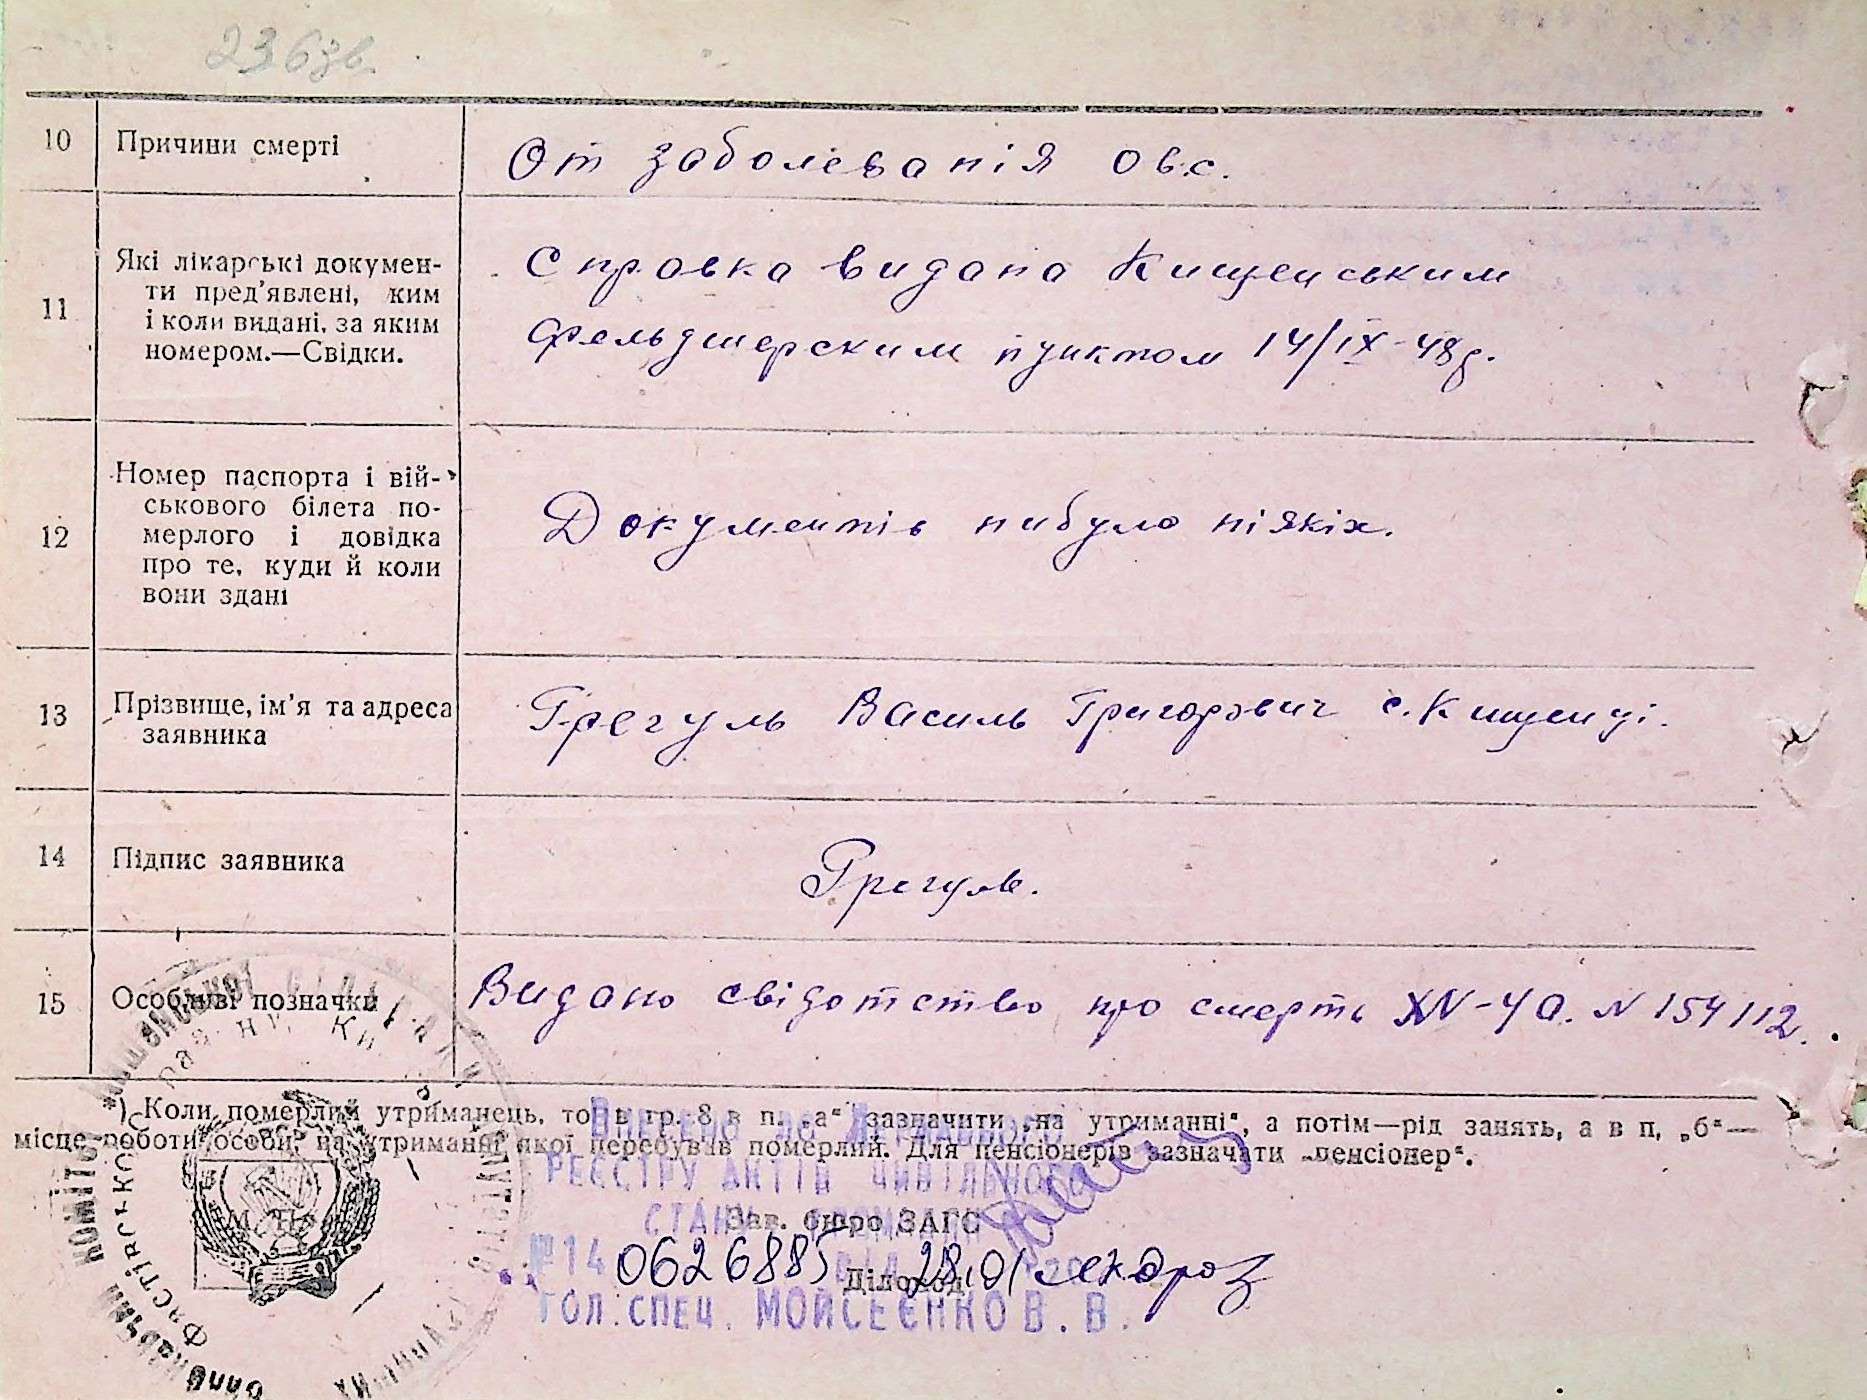 236зв.
10 Причини смерті От заболеванія о в.с.
11 Які лікарські докумен-
ти пред'явлені, ким
і коли видані, за яким
номером.—Свідки.
Справка видана Кищенським
фельдшерским пунктом 14/IX-48р.
12 Номер паспорта і вій-
ськового білета по-
мерлого і довідка
про те, куди й коли
вони здані
Документів нибуло ніякіх.
13 Прізвище, ім'я та адреса
заявника
Грегуль Василь Григорович с. Кищенці.
14 Підпис заявника Грегуль.
15 Особливі позначки Видано свідотство про смерть XN-ЧО. N 154112.
*) Коли померлий утриманець, то в гр. 8 в п. „а“ зазначити „на утриманні“, а потім—рід занять, а в п, „б“—
місце роботи особи, на утриманні якої перебував померлий. Для пенсіонерів зазначати „пенсіонер“.
Внесено до Державного
РЕЄСТРУ АКТІВ ЦИВІЛЬНОГО
СТАНУ ГРОМАДЯН
Зав. бюро ЗАГС
№ 14 0626885 від 28.01
Діловод
ГОЛ. СПЕЦ. МОЙСЕЄНКО В. В.